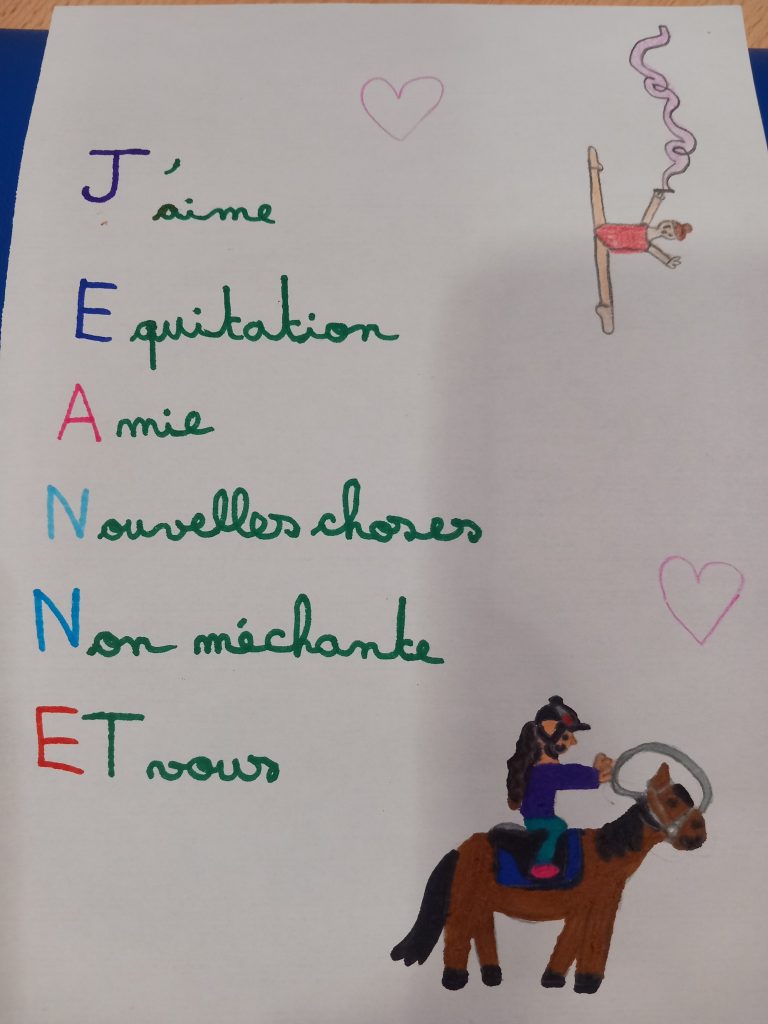 J'aime
Equitation
Amie
Nouvelles choses
Non méchante
ET vous